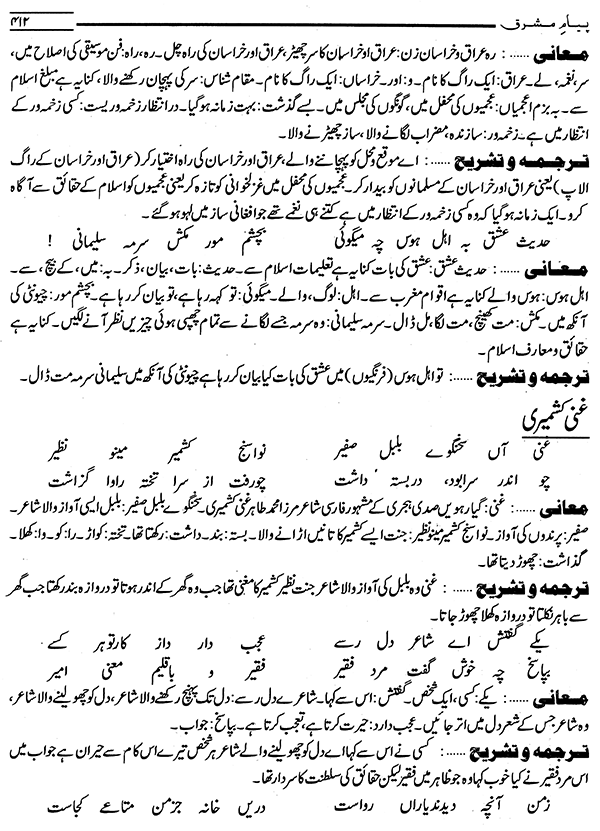 پیامِ مشرق
۴۱۲
معانی ......: رہ عراق و خراسان زن: عراق اور خراسان کا سر چھیڑ، عراق اور خراسان کی راہ چل۔ رہ، راہ: فن موسیقی کی اصلاح میں،
سر، نغمہ، لے۔ عراق: ایک راگ کا نام۔ و: اور۔ خراساں: ایک راگ کا نام۔ مقام شناس: سر کی پہچان رکھنے والا، کنایہ ہے مبلغ اسلام
سے۔ بہ بزم اعجمیاں: عجمیوں کی محفل میں، گونگوں کی مجلس میں۔ بسے گذشت: بہت زمانہ ہو گیا۔ در انتظار زخمہ وریست: کسی زخمہ ور کے
انتظار میں ہے۔ زخمہ ور: سازندہ، مضراب لگانے والا، ساز چھیڑنے والا۔
ترجمہ و تشریح ......: اے موقع و محل کو پہچاننے والے، عراق اور خراسان کی راہ اختیار کر (عراق اور خراسان کے راگ
الاپ) یعنی عراق اور خراسان کے مسلمانوں کو بیدار کر۔ عجمیوں کی محفل میں غزلخوانی کو تازہ کر یعنی عجمیوں کو اسلام کے حقائق سے آگاہ
کرو۔ ایک زمانہ ہو گیا کہ وہ کسی زخمہ ور کے انتظار میں ہے کتنے ہی نغمے تھے جو افغانی ساز میں لہو ہو گئے۔
حدیث عشق بہ اہل ہوس چہ میگوئی بچشم مور مکش سرمہ سلیمانی !
معانی ......: حدیث عشق: عشق کی بات کنایہ ہے تعلیمات اسلام سے۔ حدیث: بات، بیان، ذکر۔ بہ: میں، کے بیچ، سے۔
اہل ہوس: ہوس والے کنایہ ہے اقوام مغرب سے۔ اہل: لوگ، والے۔ میگوئی: تو کہہ رہا ہے، تو بیان کر رہا ہے۔ بچشم مور: چیونٹی کی
آنکھ میں۔ مکش: مت کھینچ، مت لگا، مل ڈال۔ سرمہ سلیمانی: وہ سرمہ جسے لگانے سے تمام چھپی ہوئی چیزیں نظر آنے لگیں۔ کنایہ ہے
حقائق و معارف اسلام۔
ترجمہ و تشریح ......: تو اہل ہوس (فرنگیوں) میں عشق کی بات کیا بیان کر رہا ہے چیونٹی کی آنکھ میں سلیمانی سرمہ مت ڈال۔
غنی کشمیری
غنی آں سخنگوے بلبل صفیر نواسنج کشمیر مینو نظیر
چو اندر سرا بود، دربستہ داشت چو رفت از سرا تختہ را وا گزاشت
معانی ......: غنی: گیارہویں صدی ہجری کے مشہور فارسی شاعر مرزا محمد طاہر غنی کشمیری۔ سخنگوے بلبل صفیر: بلبل ایسی آواز والا شاعر۔
صفیر: پرندوں کی آواز۔ نواسنج کشمیر مینو نظیر: جنت ایسے کشمیر کا تانیں اڑانے والا۔ بستہ: بند۔ داشت: رکھتا تھا۔ تختہ: کواڑ۔ را: کو۔ وا: کھلا۔
گذاشت: چھوڑ دیتا تھا۔
ترجمہ و تشریح ......: غنی وہ بلبل کی آواز والا شاعر جنت نظیر کشمیر کا مغنی تھا جب وہ گھر کے اندر ہوتا تو دروازہ بند رکھتا جب گھر
سے باہر نکلتا تو دروازہ کھلا چھوڑ جاتا۔
یکے گفتش اے شاعر دل رسے عجب دارد از کار تو ہر کسے
بپاسخ چہ خوش گفت مرد فقیر فقیر و باقلیم معنی امیر
معانی ......: یکے: کسی، ایک شخص۔ گفتش: اس سے کہا۔ شاعرے دل رسے: دل تک پہنچ رکھنے والا شاعر، دل کو چھو لینے والا شاعر،
وہ شاعر جس کے شعر دل میں اتر جائیں۔ عجب دارد: حیرت کرتا ہے، تعجب کرتا ہے۔ بپاسخ: جواب۔
ترجمہ و تشریح ......: کسی نے اس سے کہا اے دل کو چھو لینے والے شاعر ہر شخص تیرے اس کام سے حیران ہے جواب میں
اس مرد فقیر نے کیا خوب کہا وہ جو ظاہر میں فقیر لیکن حقائق کی سلطنت کا سردار تھا۔
زمن آنچہ دیدند یاراں رواست دریں خانہ جز من متاعے کجاست